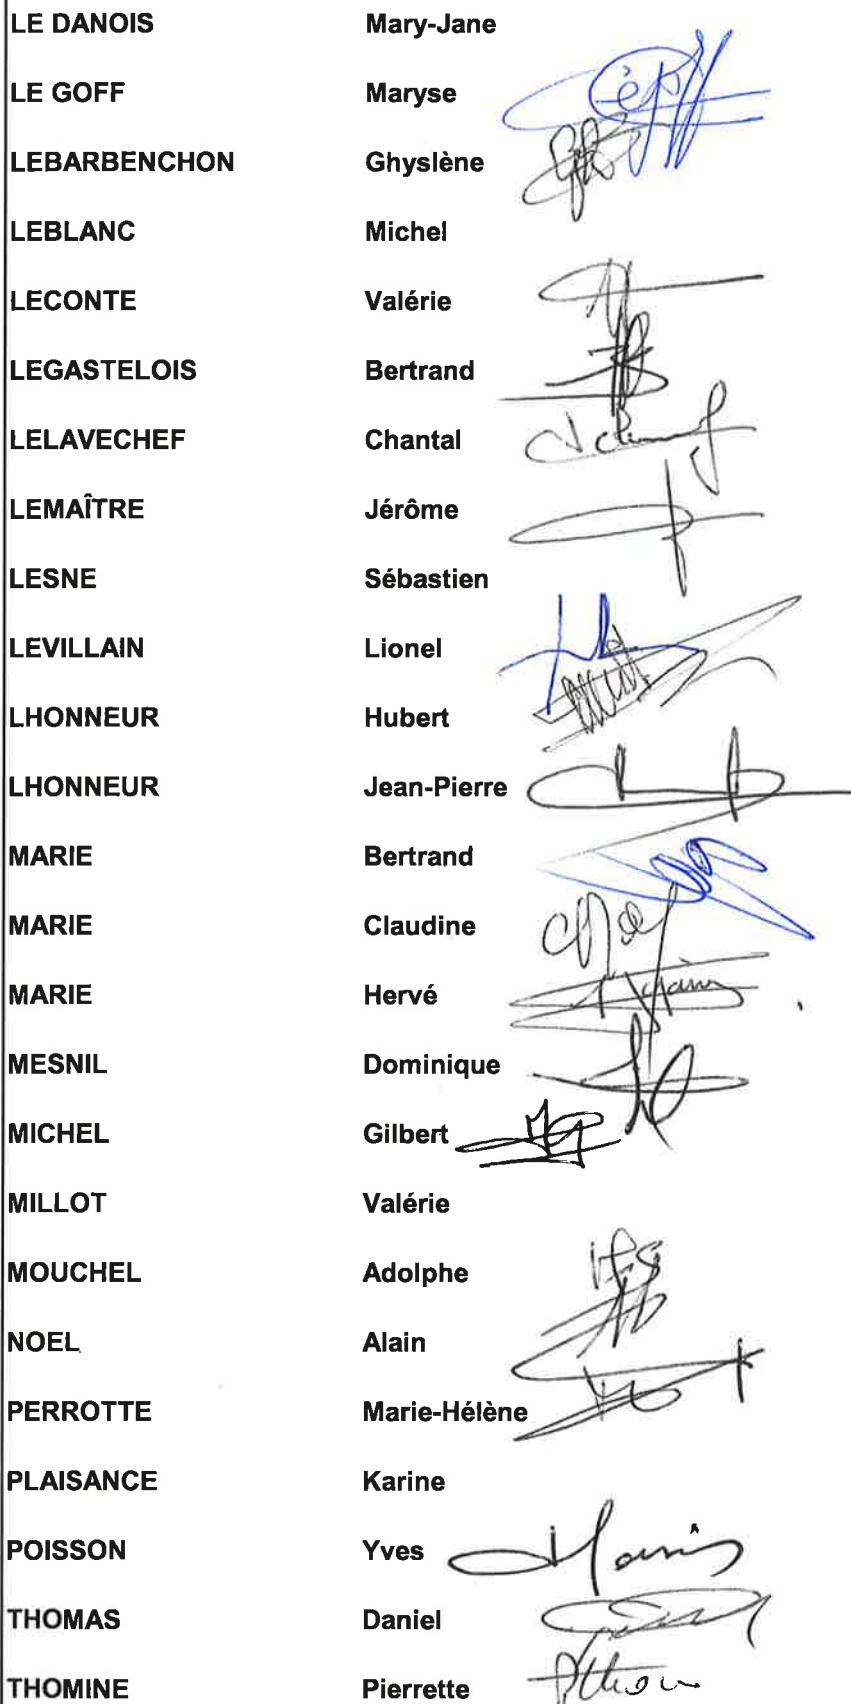 LE DANOIS Mary-Jane
LE GOFF Maryse
LEBARBENCHON Ghyslène
LEBLANC Michel
LECONTE Valérie
LEGASTELOIS Bertrand
LELAVECHEF Chantal
LEMAÎTRE Jérôme
LESNE Sébastien
LEVILLAIN Lionel
LHONNEUR Hubert
LHONNEUR Jean-Pierre
MARIE Bertrand
MARIE Claudine
MARIE Hervé
MESNIL Dominique
MICHEL Gilbert
MILLOT Valérie
MOUCHEL Adolphe
NOEL Alain
PERROTTE Marie-Hélène
PLAISANCE Karine
POISSON Yves
THOMAS Daniel
THOMINE Pierrette